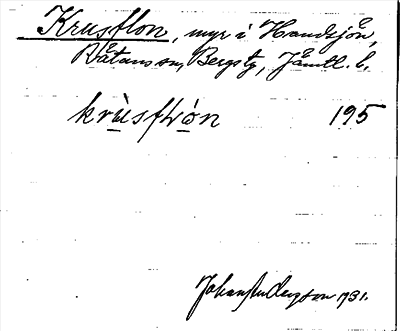 Krusflon, myr i Handsjön,
Råtans sn, Bergs tg, Jämtl. l.
krùsflòn 195
Johan Andersson 1931.